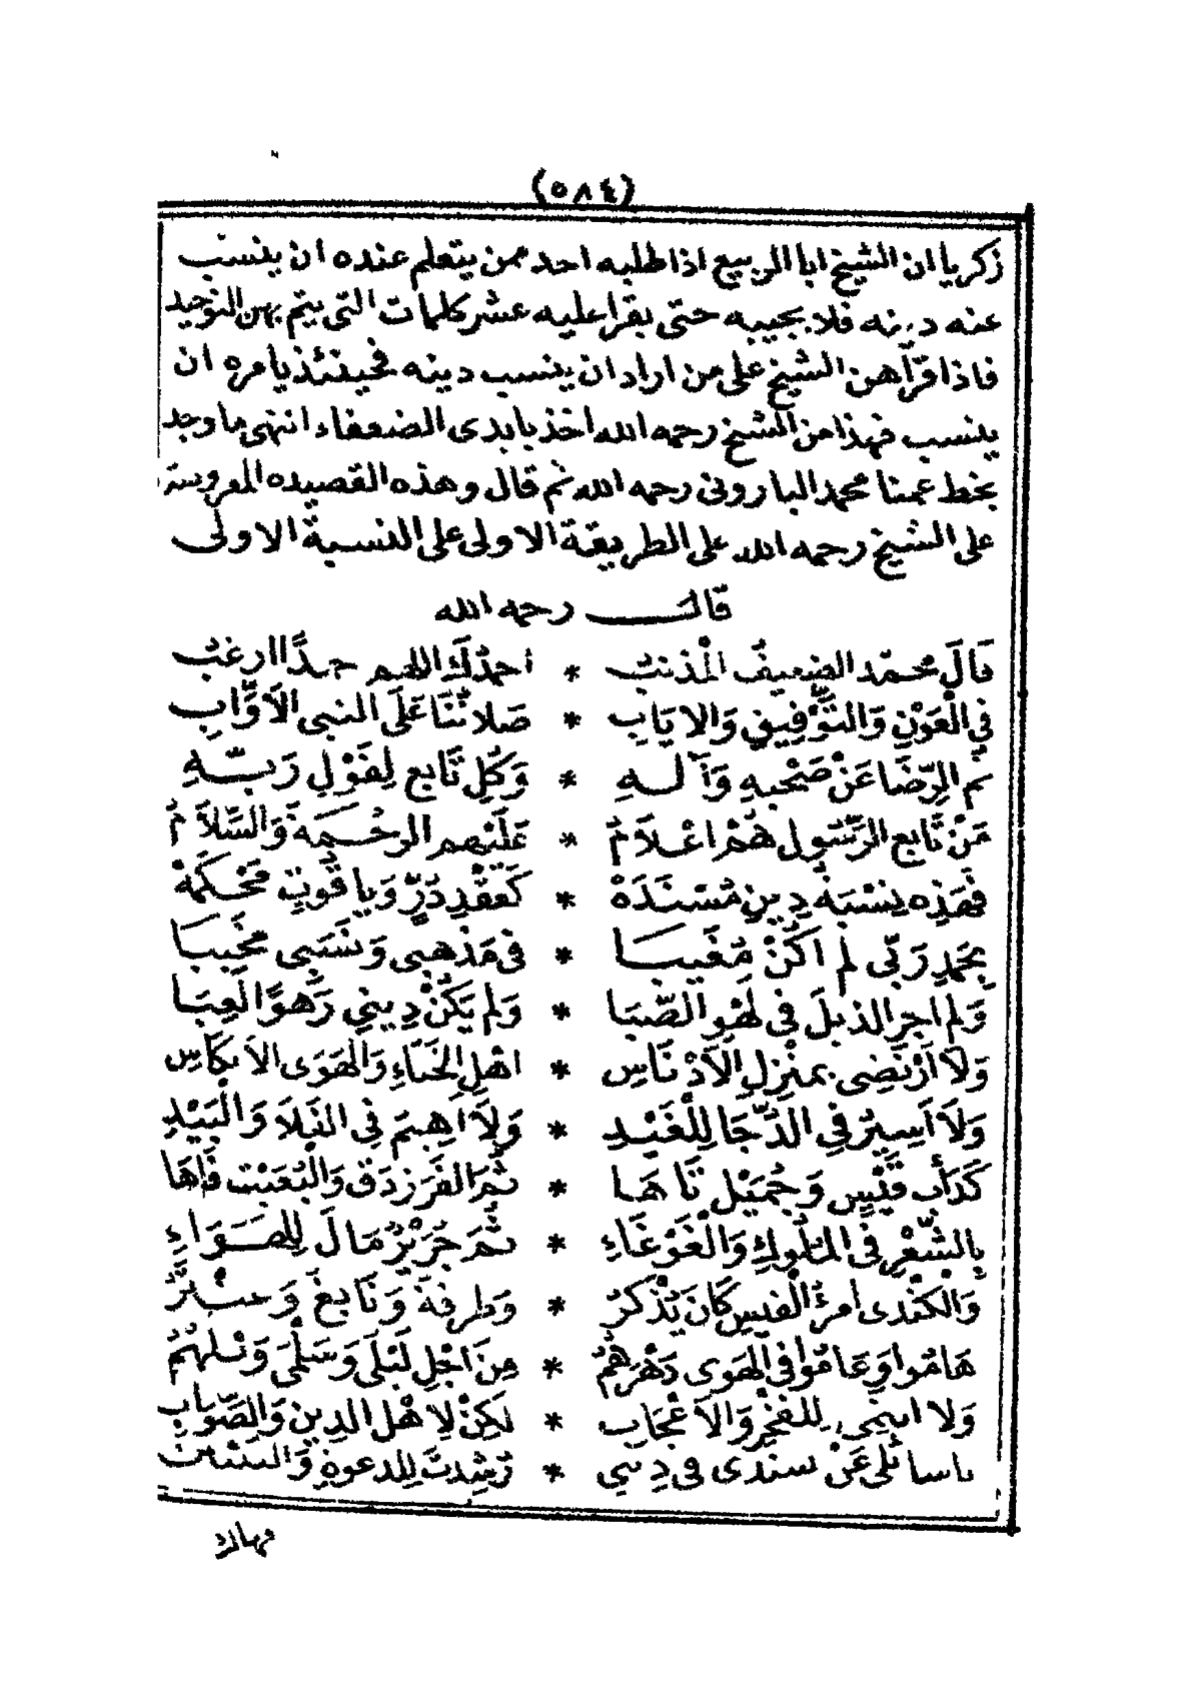 (٥٨٤)
زكريا ان الشيخ ابا الربيع اذا طلبه احد ممن يتعلم عنده ان ينسب
عنه دينه فلا يجيبه حتى يقرا عليه عشر كلمات التي يتم بهن التوحيد
فاذا قرأهن الشيخ على من اراد ان ينسب دينه فحينئذ يامره ان
ينسب فهذا من الشيخ رحمه الله اخذ بايدى الضعفاء انتهى ما وجد
بخط عمنا محمد الباروني رحمه الله ثم قال وهذه القصيده المعروضة
على الشيخ رحمه الله على الطريقة الاولى على النسبة الاولى
قال رحمه الله
قَالَ محمّد الضعيفُ الْمذنبُ * احمدُكَ اللهم حمدًا ارغبُ
في الْعَوْنِ وَالتَّوْفِيقِ وَالايَابِ * صَلاتُنَا عَلَى النبى الأَوَّابِ
ثم الرِّضَا عَنْ صَحْبِهِ وَآلهِ * وَكُلِ تَابعٍ لِقَوْلِ رَبِّهِ
مَنْ تَابع الرَّسُول هُمْ اعْلاَمُ * عَلَيْهم الرحْمَة وَالسَّلاَمُ
فهَذِه نِسْبَةُ دِينٍ مُسْنَدَهْ * كَعقْدِ دَرٍّ وَياقُوتٍ مَحْكَمَهْ
بِحَمدِ رَبّى لم اكُنْ مُغَيبَا * فى مَذْهبى وَنَسَبى مخَيبا
وَلم اجر الذيلَ فى لَهْوِ الصِّبَا * وَلم يَكُنْ دِينِي زَهْوًا لَعِبَا
وَلاَ أرْتَضى بمنْزِلِ الأَدْنَاسِ * اهْلِ الخَنَاءِ وَالهَوَى الاَنكَاسِ
وَلاَ أَسِيْر في الدُّجَا لِلْغَيْدِ * وَلاَ أَهِيمَ فِي الفَلاَ وَالْبَيْدِ
كَدَأب قَيْسٍ وَجُمَيْل تَاهَا * ثُمَّ الفَرَزدَق وَالْبُعَيْث فَاهَا
بِالشِّعْرِ فى المُلُوكِ وَالْغَوْغَاءِ * ثُمَّ جَرَيْرُ مَالَ لِلصَوَاءِ
وَالكنْدى أمرؤُ الْقيس كَانَ يُذْكرُ * وَطرفة وَنَابغ وَعنْترُ
هَامُوا وَعَامُوا فى الهَوى دَهْرَهُمُ * مِنَ اجْلِ لَيْلَى وَسَلْمَى وَنَلهُمُ
وَلا انتمى لِلفَخْرِ وَالاَعْجَاب * لكِنْ لِاهْل الدين وَالصَّوَاب
ياسائلى عَنْ سندى فى دِينى * تُرْشِدتَ لِلدعوةِ وَالتبيْين
فهاك